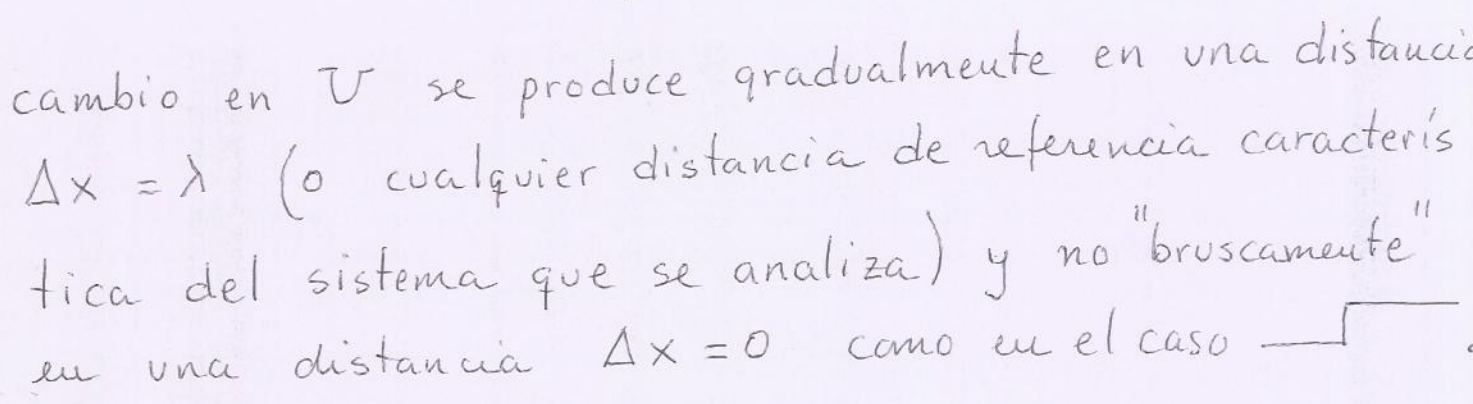 cambio en U se produce gradualmente en una distancia
Δx = λ (o cualquier distancia de referencia caracterís
tica del sistema que se analiza) y no "bruscamente"
en una distancia Δx = 0 como en el caso .